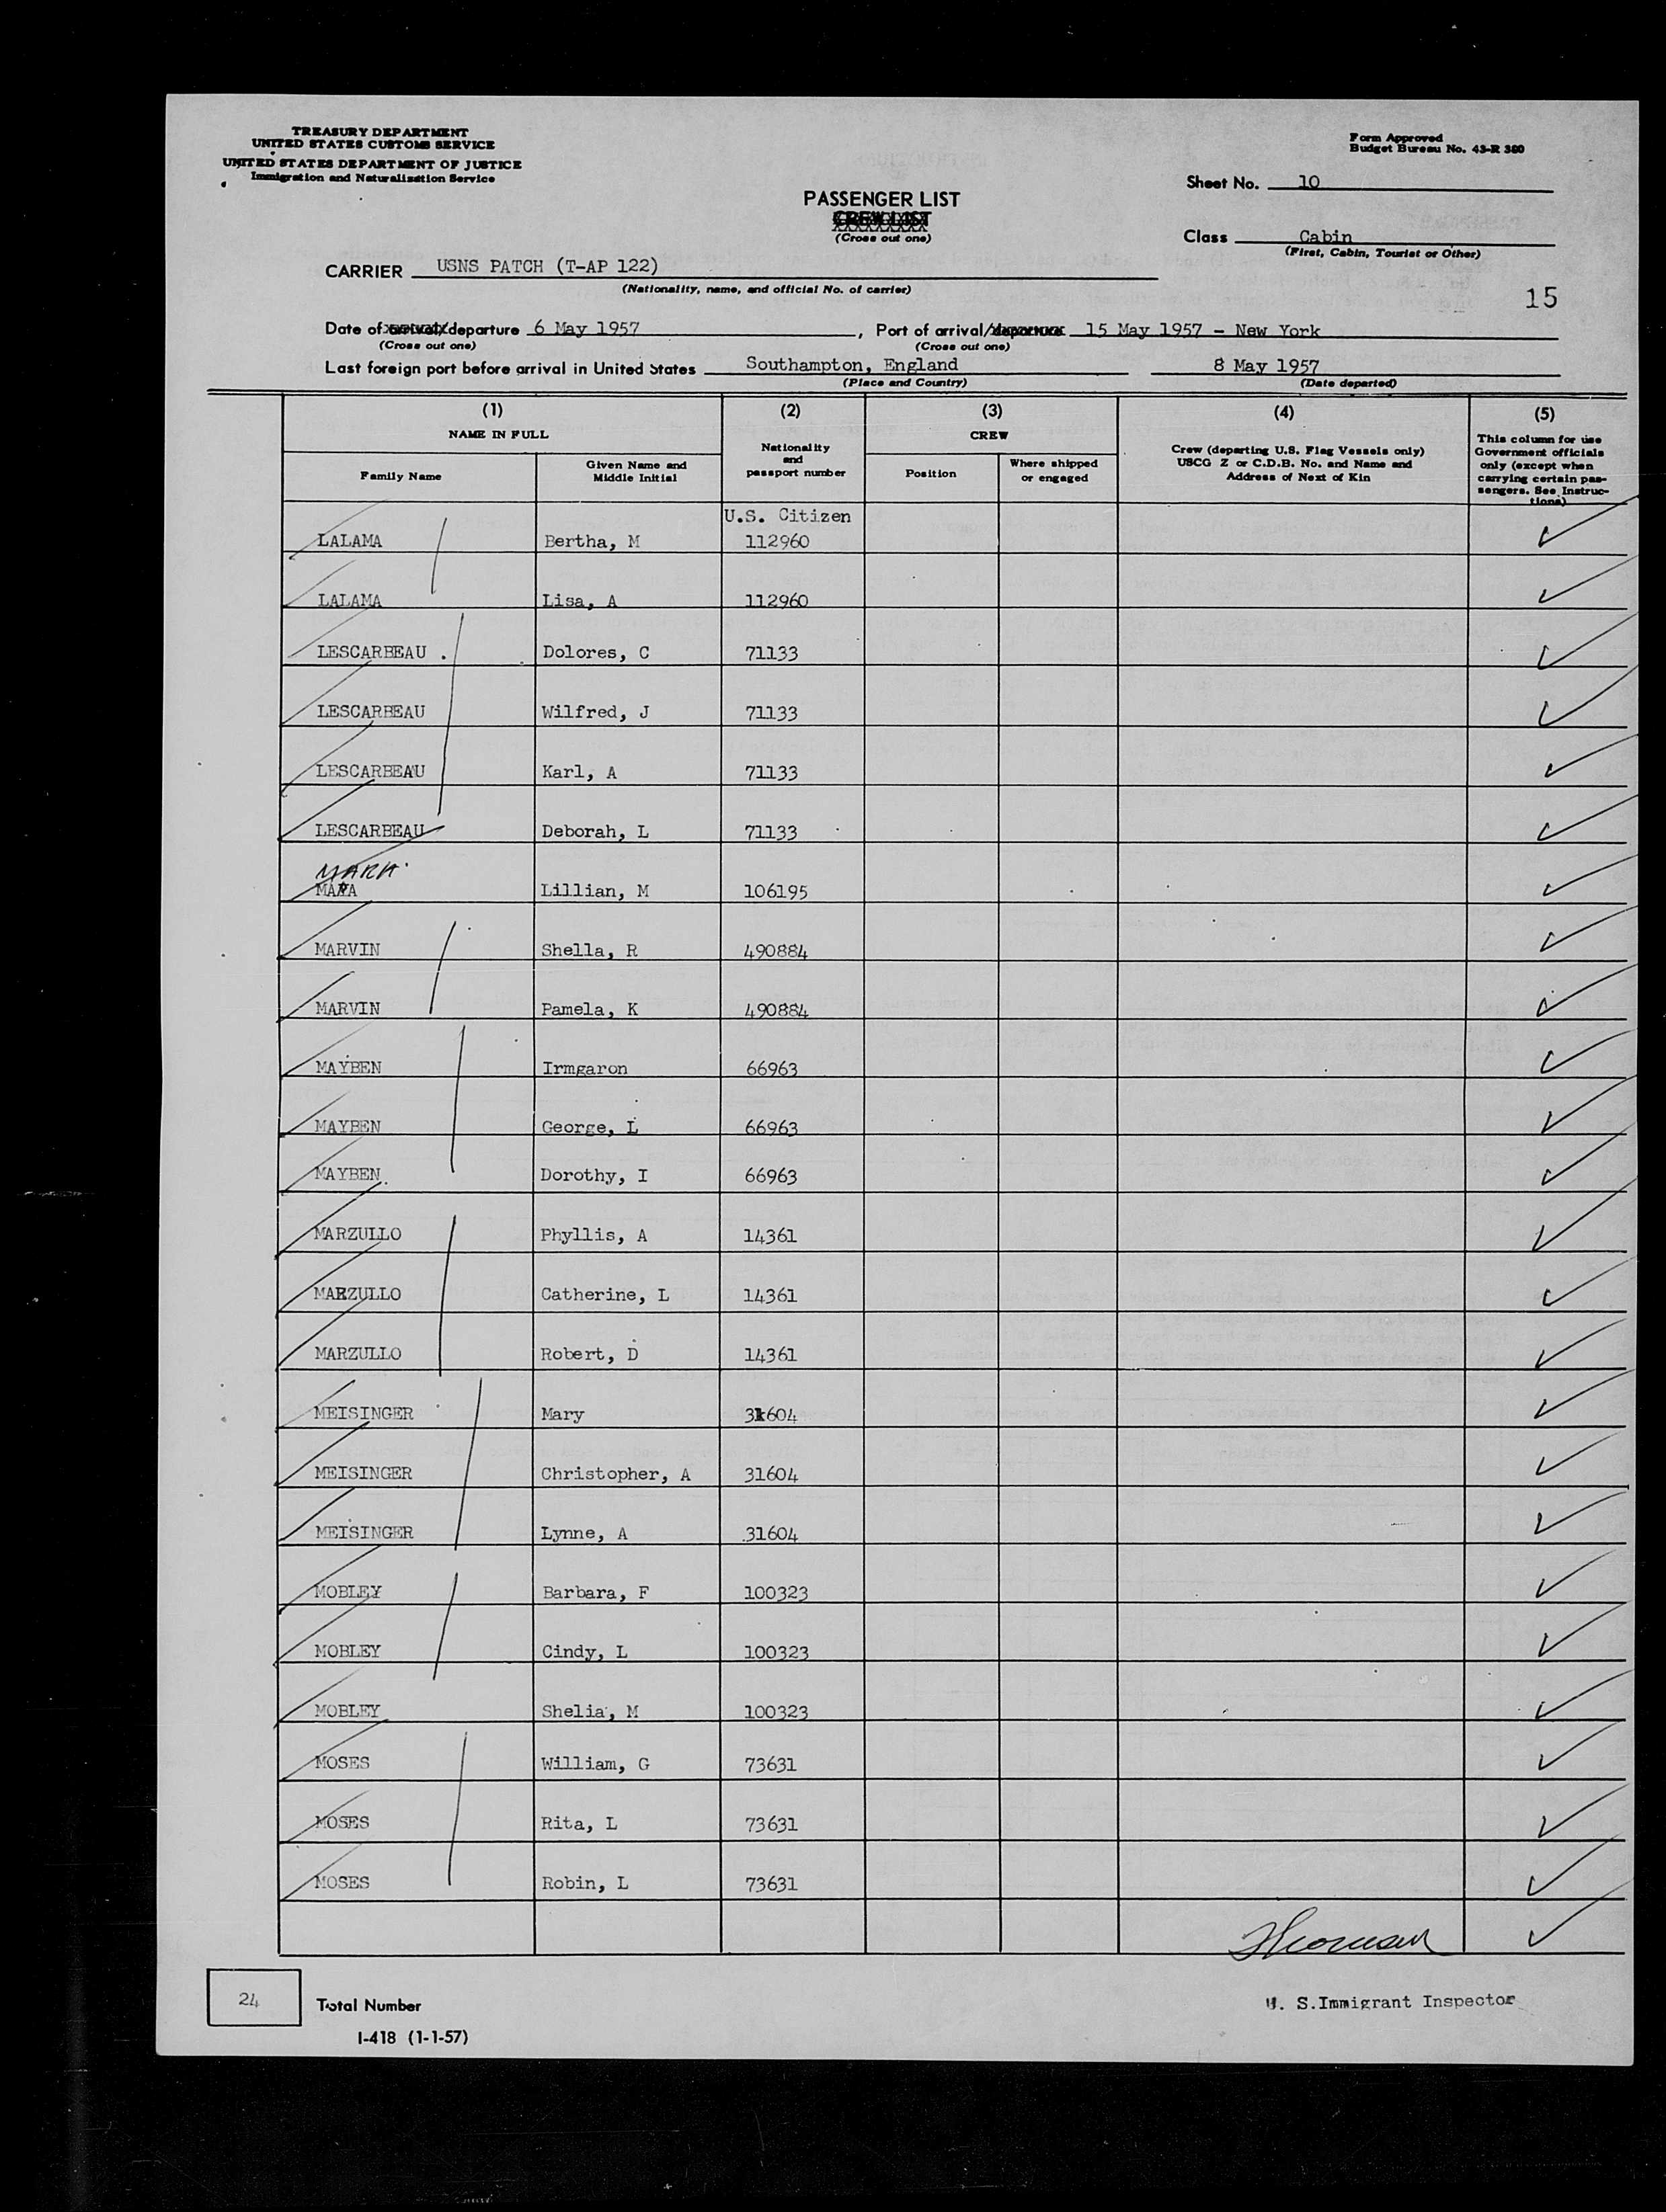 TREASURY DEPARTMENT
UNITED STATES CUSTOMS SERVICE
UNITED STATES DEPARTMENT OF JUSTICE
Immigration and Naturalization Service
Form Approved
Budget Bureau No. 43-R 380
Sheet No. 10
PASSENGER LIST
CREW LIST
(Cross out one)
Class Cabin
(First, Cabin, Tourist or Other)
CARRIER USNS PATCH (T-AP 122)
(Nationality, name, and official No. of carrier)
15
Date of arrival/departure 6 May 1957, Port of arrival/departure 15 May 1957 - New York
(Cross out one) (Cross out one)
Last foreign port before arrival in United States Southampton, England 8 May 1957
(Place and Country) (Date departed)
(1) (2) (3) (4) (5)
NAME IN FULL
Family Name
Given Name and Middle Initial
Nationality and passport number
CREW
Position
Where shipped or engaged
Crew (departing U.S. Flag Vessels only)
USCG Z or C.D.B. No. and Name and
Address of Next of Kin
This column for use
Government officials
only (except when
carrying certain pas-
sengers. See Instruc-
tions)
U.S. Citizen
LALAMA Bertha, M 112960
LALAMA Lisa, A 112960
LESCARBEAU Dolores, C 71133
LESCARBEAU Wilfred, J 71133
LESCARBEAU Karl, A 71133
LESCARBEAU Deborah, L 71133
MARA
Lillian, M 106195
MARVIN Shella, R 490884
MARVIN Pamela, K 490884
MAYBEN Irmgaron 66963
MAYBEN George, L 66963
MAYBEN Dorothy, I 66963
MARZULLO Phyllis, A 14361
MARZULLO Catherine, L 14361
MARZULLO Robert, D 14361
MEISINGER Mary 31604
MEISINGER Christopher, A 31604
MEISINGER Lynne, A 31604
MOBLEY Barbara, F 100323
MOBLEY Cindy, L 100323
MOBLEY Shelia, M 100323
MOSES William, G 73631
MOSES Rita, L 73631
MOSES Robin, L 73631
24 Total Number
U. S.Immigrant Inspector
I-418 (1-1-57)